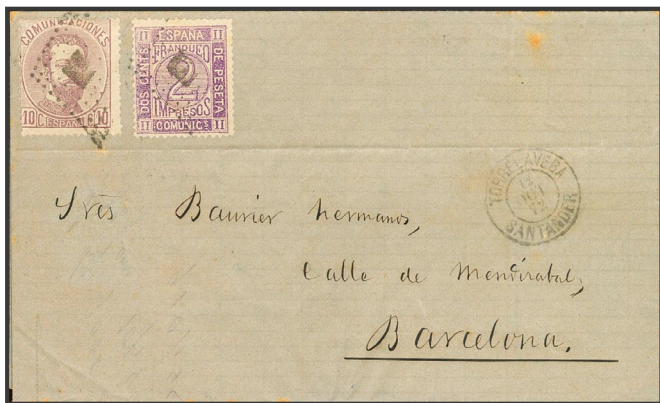 COMUNICACIONES
10 C. ESPAÑA C. 10
II ESPAÑA II
FRANQUEO
DOS CENTS
2
DE PESETA
IMPRESOS
II COMUNICS II
TORRELAVEGA
SANTANDER
Sres Baurier hermanos,
Calle de Mendizabal,
Barcelona.